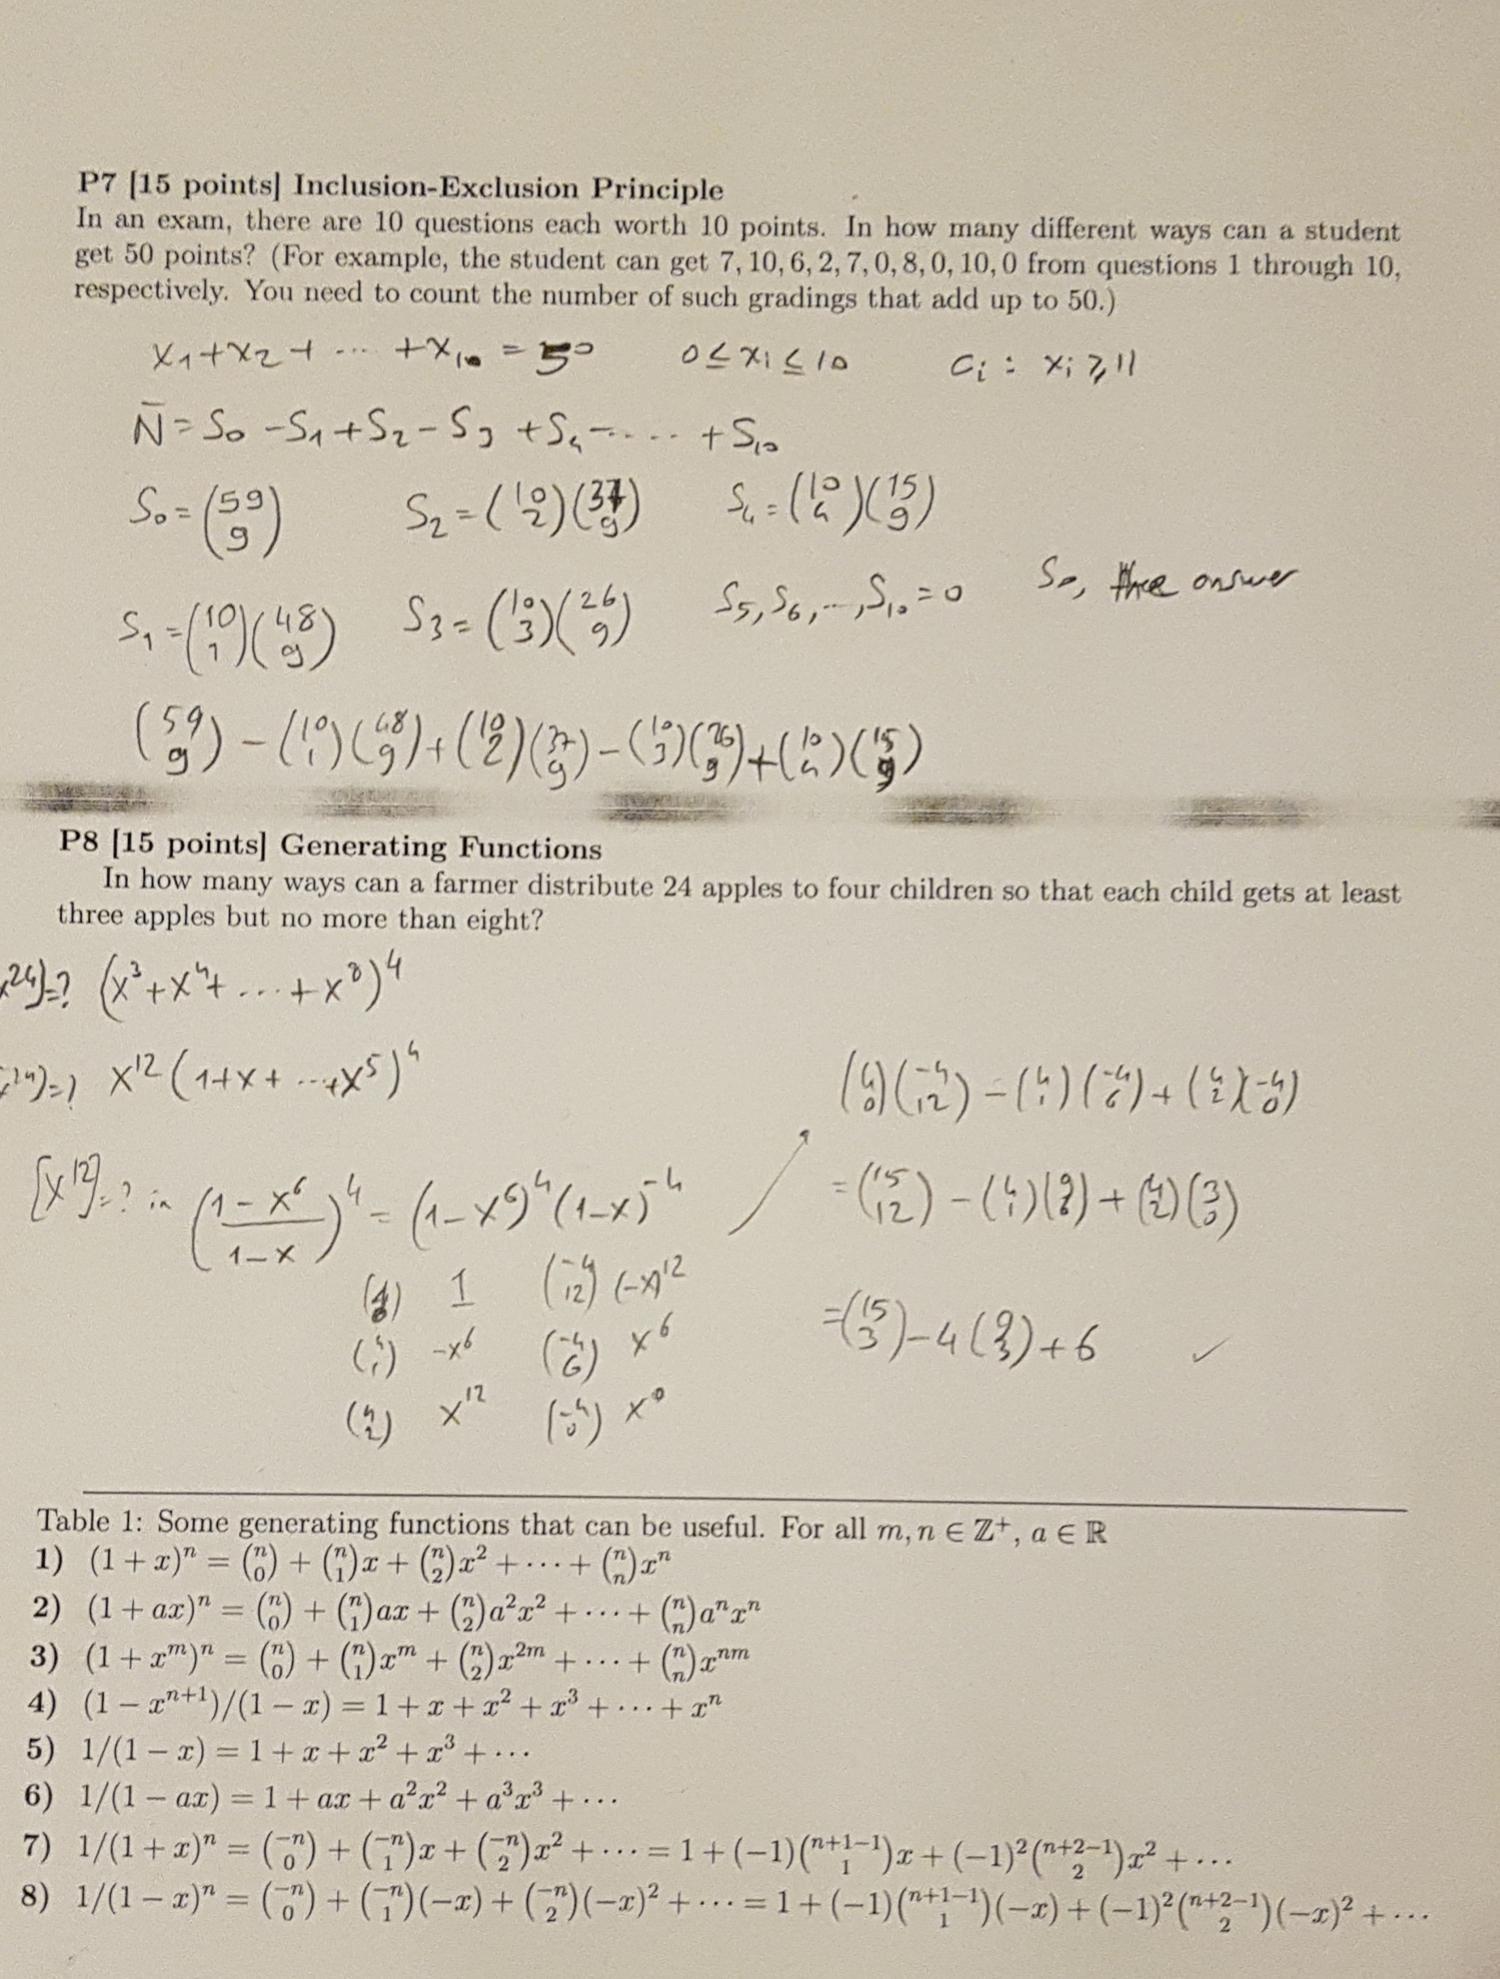 P7 [15 points] Inclusion-Exclusion Principle
In an exam, there are 10 questions each worth 10 points. In how many different ways can a student
get 50 points? (For example, the student can get 7, 10, 6, 2, 7, 0, 8, 0, 10, 0 from questions 1 through 10,
respectively. You need to count the number of such gradings that add up to 50.)
x₁+x₂+ ... +x₁₀ = 50 0≤xᵢ≤10 cᵢ : xᵢ ≥ 11
N̄ = S₀ -S₁+S₂-S₃ +S₄-.... +S₁₀
S₀ = (59 9) S₂ = (10 2)(37 9) S₄ = (10 4)(15 9)
S₁ = (10 1)(48 9) S₃ = (10 3)(26 9) S₅, S₆, ..., S₁₀ = 0 So, the answer
(59 9) - (10 1)(48 9) + (10 2)(37 9) - (10 3)(26 9) + (10 4)(15 9)
P8 [15 points] Generating Functions
In how many ways can a farmer distribute 24 apples to four children so that each child gets at least
three apples but no more than eight?
x²⁴]=? (x³+x⁴+ ... +x⁸)⁴
x²⁴]=? x¹²(1+x+ ...+x⁵)⁴
(4 0)(-4 12) - (4 1)(-4 6) + (4 2)(-4 0)
[x¹²]=? in ((1-x⁶)/(1-x))⁴ = (1-x⁶)⁴(1-x)⁻⁴
= (15 12) - (4 1)(9 6) + (4 2)(3 0)
(4 0) 1 (-4 12) (-x)¹²
(4 1) -x⁶ (-4 6) x⁶
= (15 3) - 4(9 3) + 6 ✓
(4 2) x¹² (-4 0) x⁰
Table 1: Some generating functions that can be useful. For all m, n ∈ ℤ⁺, a ∈ ℝ
1) (1 + x)ⁿ = (n 0) + (n 1)x + (n 2)x² + ··· + (n n)xⁿ
2) (1 + ax)ⁿ = (n 0) + (n 1)ax + (n 2)a²x² + ··· + (n n)aⁿxⁿ
3) (1 + xᵐ)ⁿ = (n 0) + (n 1)xᵐ + (n 2)x²ᵐ + ··· + (n n)xⁿᵐ
4) (1 − xⁿ⁺¹)/(1 − x) = 1 + x + x² + x³ + ··· + xⁿ
5) 1/(1 − x) = 1 + x + x² + x³ + ···
6) 1/(1 − ax) = 1 + ax + a²x² + a³x³ + ···
7) 1/(1 + x)ⁿ = (−n 0) + (−n 1)x + (−n 2)x² + ··· = 1 + (−1)(n+1−1 1)x + (−1)²(n+2−1 2)x² + ···
8) 1/(1 − x)ⁿ = (−n 0) + (−n 1)(−x) + (−n 2)(−x)² + ··· = 1 + (−1)(n+1−1 1)(−x) + (−1)²(n+2−1 2)(−x)² + ···